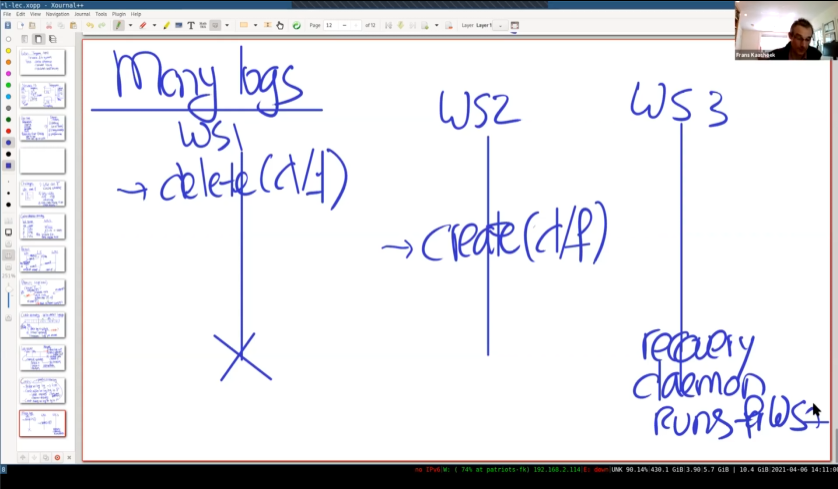 *l-lec.xopp - Xournal++
File Edit View Navigation Journal Tools Plugin Help
Page 12 of 12 Layer Layer 1
Frans Kaashoek
Many logs
WS1 WS2 WS3
→ delete(d/f)
→ create(d/f)
recovery
daemon
runs f WS1
no IPv6 W: ( 74% at patriots-fk) 192.168.2.114 E: down UNK 90.14% 430.1 GiB 3.90 5.7 GiB | 10.4 GiB 2021-04-06 14:11:0